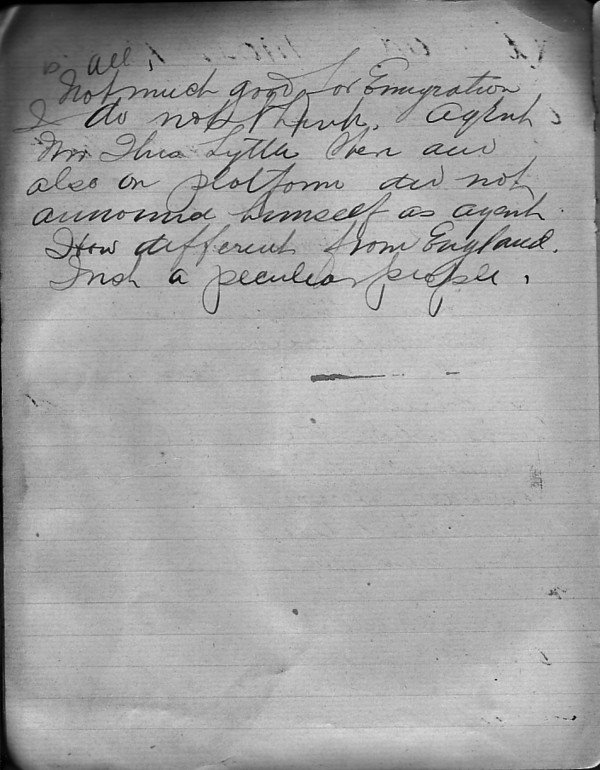 all
Not much good for Emigration
I do not think. Agent
Mr Thos Lyttle
also on platform did not
announce himself as agent.
How different from England.
Irish a peculiar people.